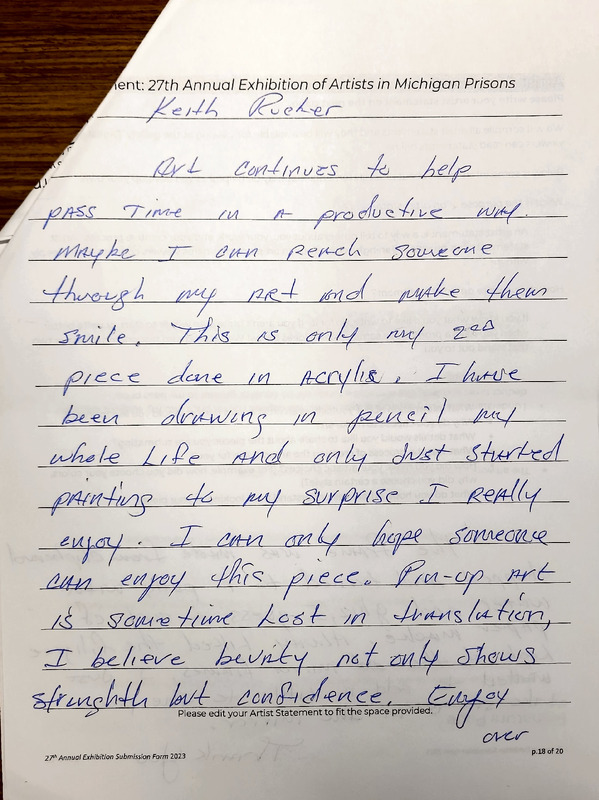 ent: 27th Annual Exhibition of Artists in Michigan Prisons
Keith Rucker
Art continues to help
pass time in a productive way.
Maybe I can reach someone
through my art and make them
smile. This is only my 2nd
piece done in Acrylic. I have
been drawing in pencil my
whole Life and only Just started
painting to my surprise I Really
enjoy. I can only hope someone
can enjoy this piece. Pin-up Art
is sometime Lost in translation,
I believe beuity not only shows
strenghth but confidence. Enjoy
Please edit your Artist Statement to fit the space provided.
over
27th Annual Exhibition Submission Form 2023
p.18 of 20